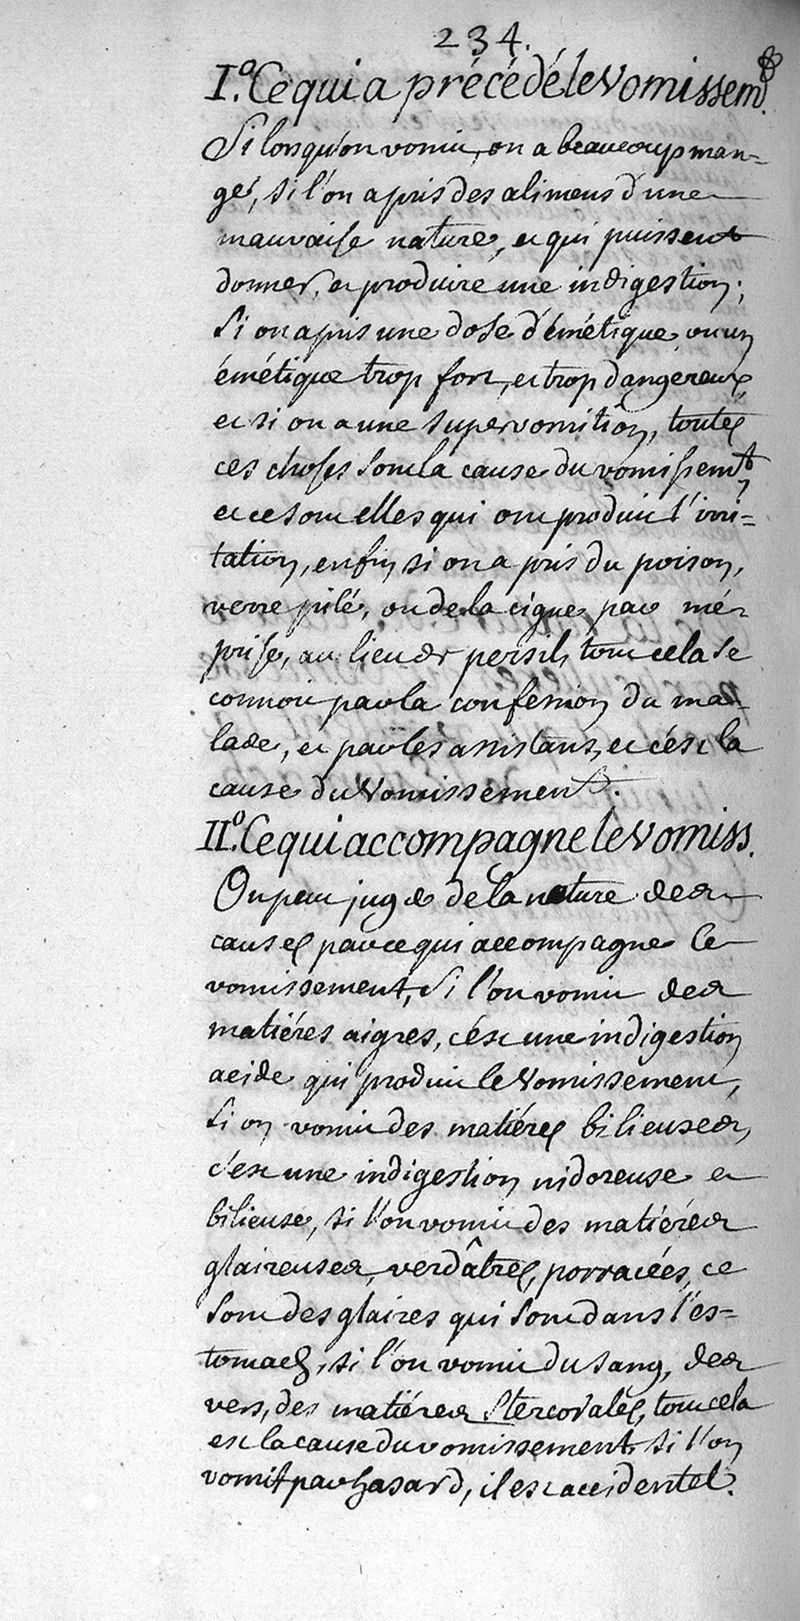 234.
I.º Ce qui a précédé le Vomissem.t
Si lorsqu'on vomit, on a beaucoup man=
gé, si l'on a pris des alimens d'une
mauvaise nature, et qui puissent
donner, et produire une indigestion;
Si on a pris une dose d'émétique, ou un
émétique trop fort, et trop dangereux,
et si on a une supervomition, toutes
ces choses sont la cause du vomissem.t,
et ce sont elles qui ont produit l'irri=
tation, enfin, si on a pris du poison,
verre pilé, ou de la cigue par mé=
prise, au lieu de persil, tout cela se
connoit par la confession du ma=
lade, et par les assistans, et c'est la
cause du Vomissement.
II.º Ce qui accompagne le Vomiss.
On peut juger de la nature des
causes par ce qui accompagne le
vomissement, Si l'on vomit des
matiéres aigres, c'est une indigestion
acide qui produit le Vomissement,
Si on vomit des matiéres bilieuses,
c'est une indigestion nidoreuse et
bilieuse, si l'on vomit des matiéres
glaireuses, verdâtres, porracées, ce
sont des glaires qui sont dans l'es=
tomach, si l'on vomit du sang, des
vers, des matiéres Stercorales, tout cela
est la cause du vomissement si l'on
vomit par hasard, il est accidentel.